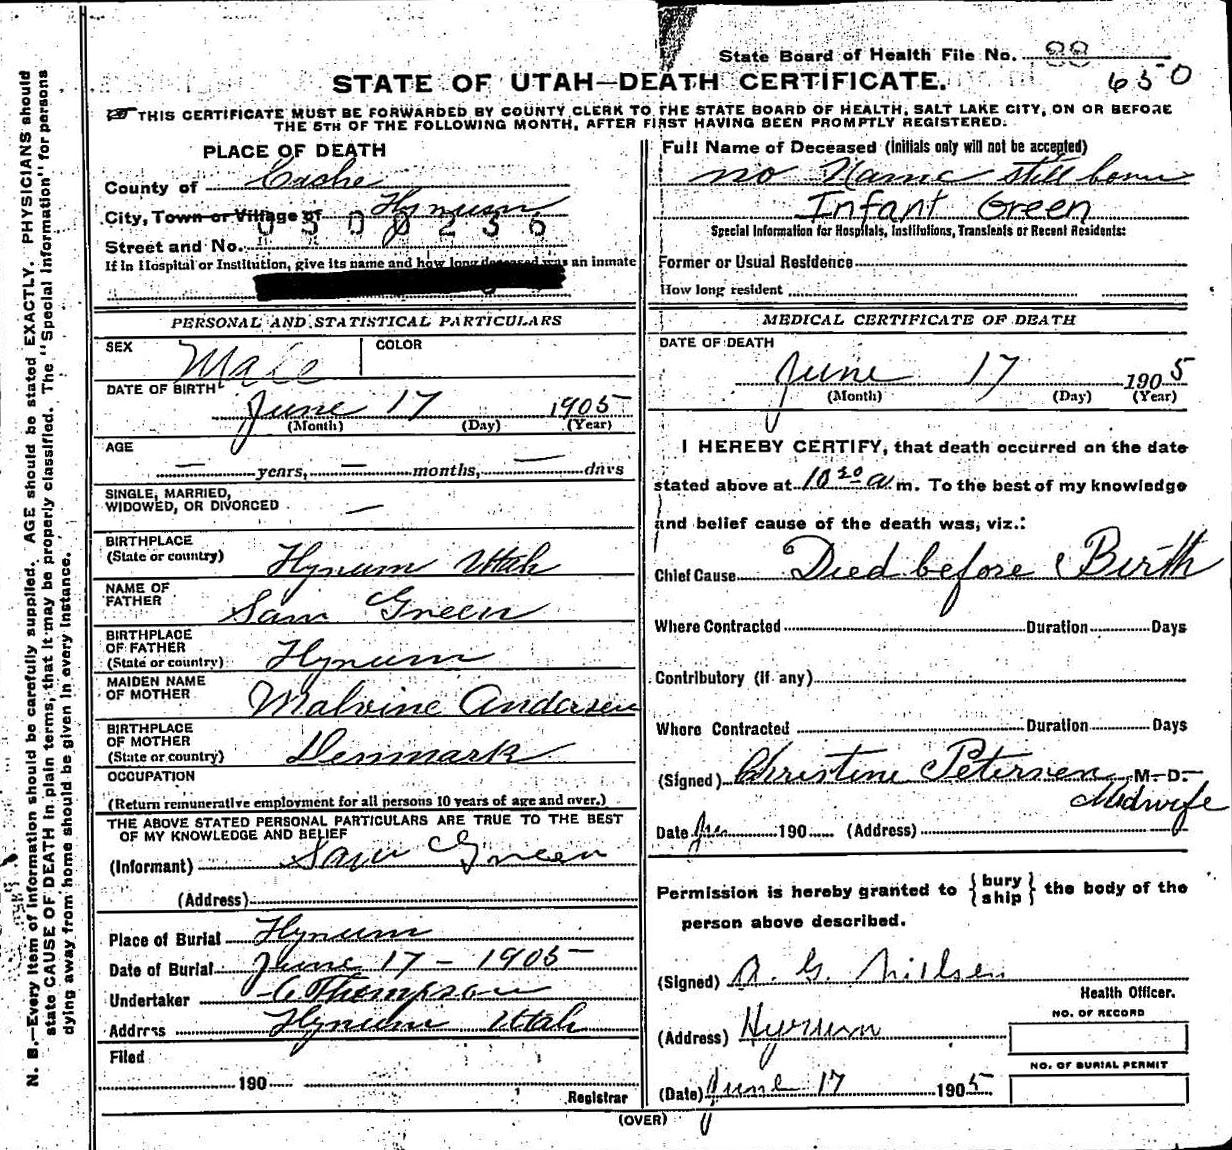 State Board of Health File No. 88
650
STATE OF UTAH—DEATH CERTIFICATE.
THIS CERTIFICATE MUST BE FORWARDED BY COUNTY CLERK TO THE STATE BOARD OF HEALTH, SALT LAKE CITY, ON OR BEFORE
THE 5TH OF THE FOLLOWING MONTH, AFTER FIRST HAVING BEEN PROMPTLY REGISTERED.
PLACE OF DEATH
County of Cache
City, Town or Village of Hyrum
0500236
Street and No.
If in Hospital or Institution, give its name and how long deceased was an inmate
Full Name of Deceased (Initials only will not be accepted)
no Name still born
Infant Green
Special Information for Hospitals, Institutions, Transients or Recent Residents:
Former or Usual Residence
How long resident
PERSONAL AND STATISTICAL PARTICULARS
SEX Male
COLOR
DATE OF BIRTH
June 17 1905
(Month) (Day) (Year)
AGE
— years, — months, — days
SINGLE, MARRIED,
WIDOWED, OR DIVORCED —
BIRTHPLACE
(State or country) Hyrum Utah
NAME OF
FATHER Sam Green
BIRTHPLACE
OF FATHER
(State or country) Hyrum
MAIDEN NAME
OF MOTHER Malvine Andersen
BIRTHPLACE
OF MOTHER
(State or country) Denmark
OCCUPATION
(Return remunerative employment for all persons 10 years of age and over.)
THE ABOVE STATED PERSONAL PARTICULARS ARE TRUE TO THE BEST
OF MY KNOWLEDGE AND BELIEF
(Informant) Sam Green
(Address)
Place of Burial Hyrum
Date of Burial June 17 - 1905
Undertaker Thompson
Address Hyrum Utah
Filed
190
Registrar
MEDICAL CERTIFICATE OF DEATH
DATE OF DEATH
June 17 1905
(Month) (Day) (Year)
I HEREBY CERTIFY, that death occurred on the date
stated above at 10 30 a m. To the best of my knowledge
and belief cause of the death was, viz.:
Chief Cause Died before Birth
Where Contracted Duration Days
Contributory (if any)
Where Contracted Duration Days
(Signed) Christine Petersen M-D.
Midwife
Date 190 (Address)
Permission is hereby granted to {bury
ship} the body of the
person above described.
(Signed) A. G. Nielsen
Health Officer.
(Address) Hyrum
NO. OF RECORD
NO. OF BURIAL PERMIT
(Date) June 17 1905
(OVER)
N. B.—Every item of information should be carefully supplied. AGE should be stated EXACTLY. PHYSICIANS should
state CAUSE OF DEATH in plain terms, that it may be properly classified. The "Special Information" for persons
dying away from home should be given in every instance.